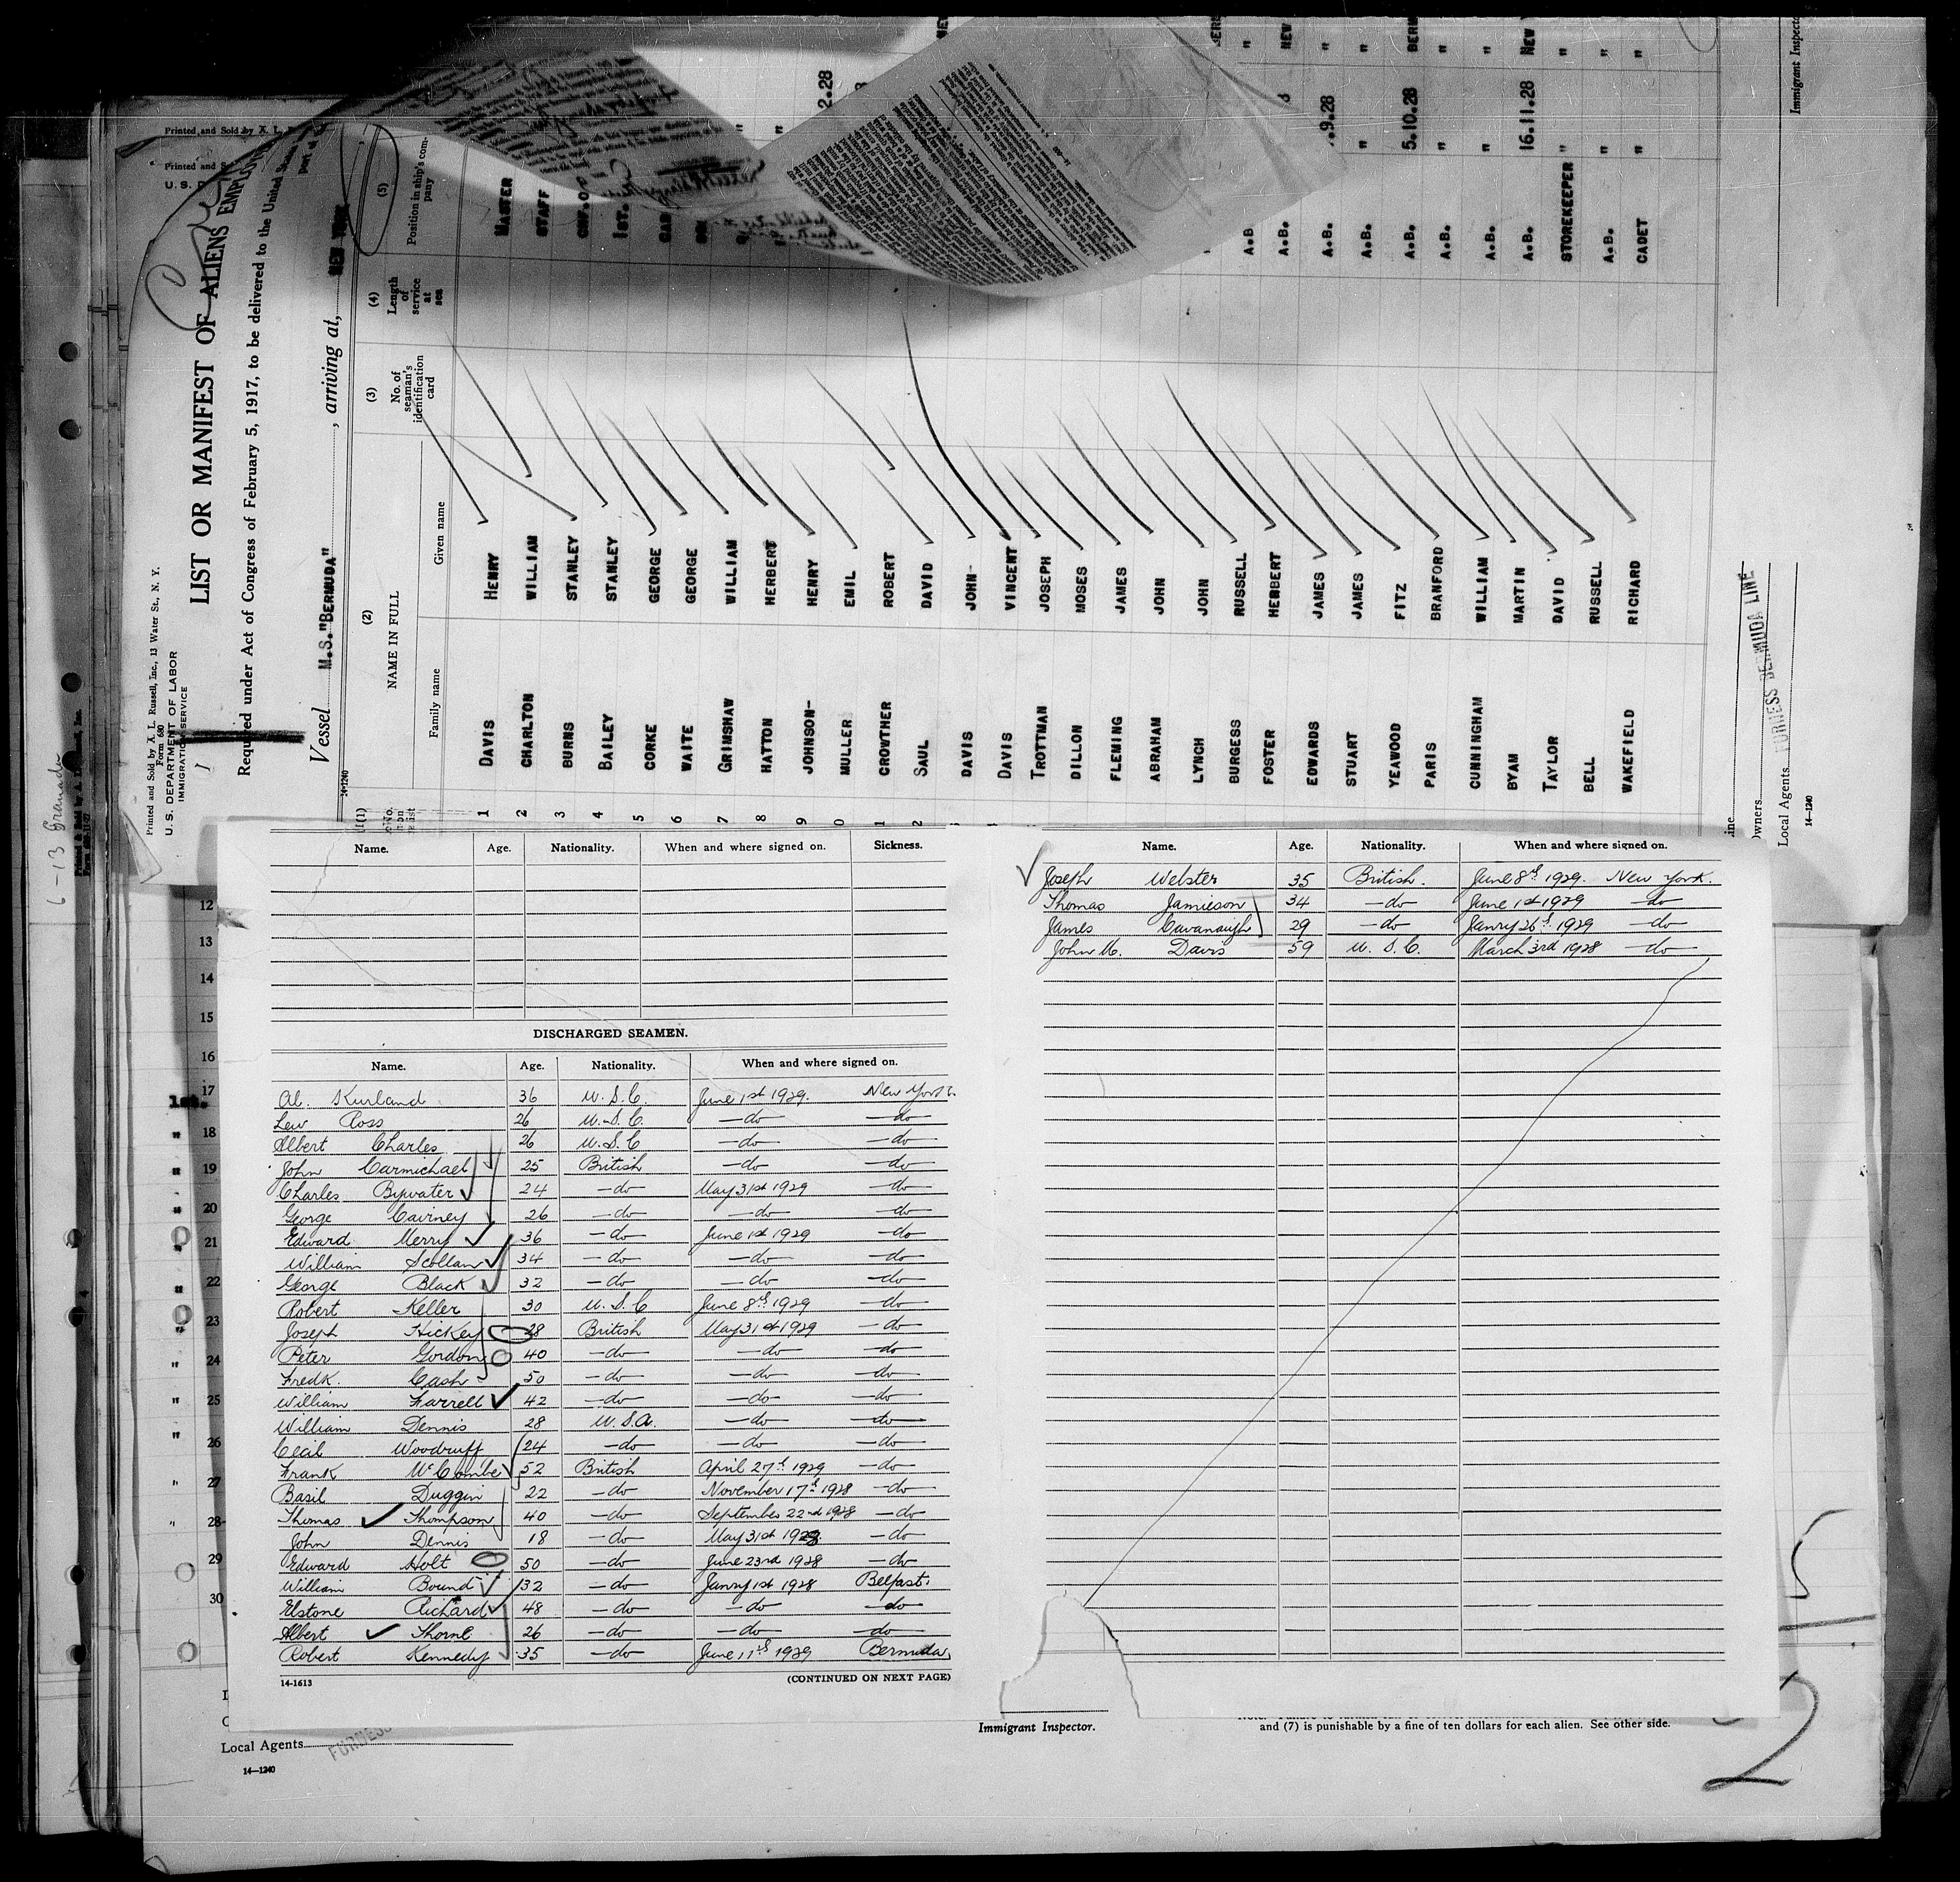 6-13 Granada
Printed and Sold by A. L. Russell, Inc., 13 Water St., N. Y.
Form 680
U. S. DEPARTMENT OF LABOR
IMMIGRATION SERVICE
LIST OR MANIFEST OF ALIENS EMPLOY
Required under Act of Congress of February 5, 1917, to be delivered to the United States
part of
Vessel M.S."BERMUDA" , arriving at, NEW YORK
14-1240
(2) (3) (4) (5)
NAME IN FULL No. of seaman's identification card Length of service at sea Position in ship's company
Family name Given name
1 DAVIS HENRY MASTER
2 CHARLTON WILLIAM STAFF
3 BURNS STANLEY
4 BAILEY STANLEY 1st.
5 CORKE GEORGE
6 WAITE GEORGE
7 GRIMSHAW WILLIAM
8 HATTON HERBERT
9 JOHNSON- HENRY
0 MULLER EMIL
1 CROWTHER ROBERT
2 SAUL DAVID
DAVIS JOHN
DAVIS VINCENT
TROTTMAN JOSEPH
DILLON MOSES
FLEMING JAMES
ABRAHAM JOHN
LYNCH JOHN
BURGESS RUSSELL A.B
FOSTER HERBERT A.B. NEW
EDWARDS JAMES A.B. .9.28 "
STUART JAMES A.B. " "
YEAWOOD FITZ A.B. 5.10.28 BERM
PARIS BRANFORD A.B. " "
CUNNINGHAM WILLIAM A.B. " "
BYAM MARTIN A.B. 16.11.28 NEW
TAYLOR DAVID STOREKEEPER " "
BELL RUSSELL A.B. " "
WAKEFIELD RICHARD CADET " "
Immigrant Inspecto
Owners
FURNESS BERMUDA LINE
Local Agents FURNESS BERMUDA LINE
14-1240
Name. Age. Nationality. When and where signed on. Sickness.
DISCHARGED SEAMEN.
Name. Age. Nationality. When and where signed on.
Al. Kurland 36 U.S.C. June 1st 1929. New York.
Lew Ross 26 U.S.C. —do— —do—
Albert Charles 26 U.S.C —do— —do—
John Carmichael 25 British —do— —do—
Charles Bywater 24 —do— May 31st 1929 —do—
George Cairney 26 —do— —do— —do—
Edward Merry 36 —do— June 1st 1929 —do—
William Scollan 34 —do— —do— —do—
George Black 32 —do— —do— —do—
Robert Keller 30 U.S.C June 8th 1929 —do—
Joseph Hickey 28 British May 31st 1929 —do—
Peter Gordon 40 —do— —do— —do—
Fredk. Cash 50 —do— —do— —do—
William Farrell 42 —do— —do— —do—
William Dennis 28 U.S.A. —do— —do—
Cecil Woodruff 24 —do— —do— —do—
Frank McCombe 52 British April 27th 1929 —do—
Basil Duggin 22 —do— November 17th 1928 —do—
Thomas Thompson 40 —do— September 22nd 1928 —do—
John Dennis 18 —do— May 31st 1928 —do—
Edward Holt 50 —do— June 23rd 1928 —do—
William Bound 32 —do— Janry 1st 1928 Belfast.
Elstone Richard 48 —do— —do— —do—
Albert Thorne 26 —do— —do— —do—
Robert Kennedy 35 —do— June 11th 1929 Bermuda,
14-1613 (CONTINUED ON NEXT PAGE)
Name. Age. Nationality. When and where signed on.
Joseph Webster 35 British. June 8th 1929. New York.
Thomas Jamieson 34 —do— June 1st 1929 —do—
James Cavanaugh 29 —do— Janry 26th 1929 —do—
John M. Davis 59 U.S.C. March 3rd 1928 —do—
12
13
14
15
16
17
1st.
18
19
20
21
22
23
24
25
26
27
28
29
30
Immigrant Inspector.
and (7) is punishable by a fine of ten dollars for each alien. See other side.
Local Agents FURNESS
14-1240
2